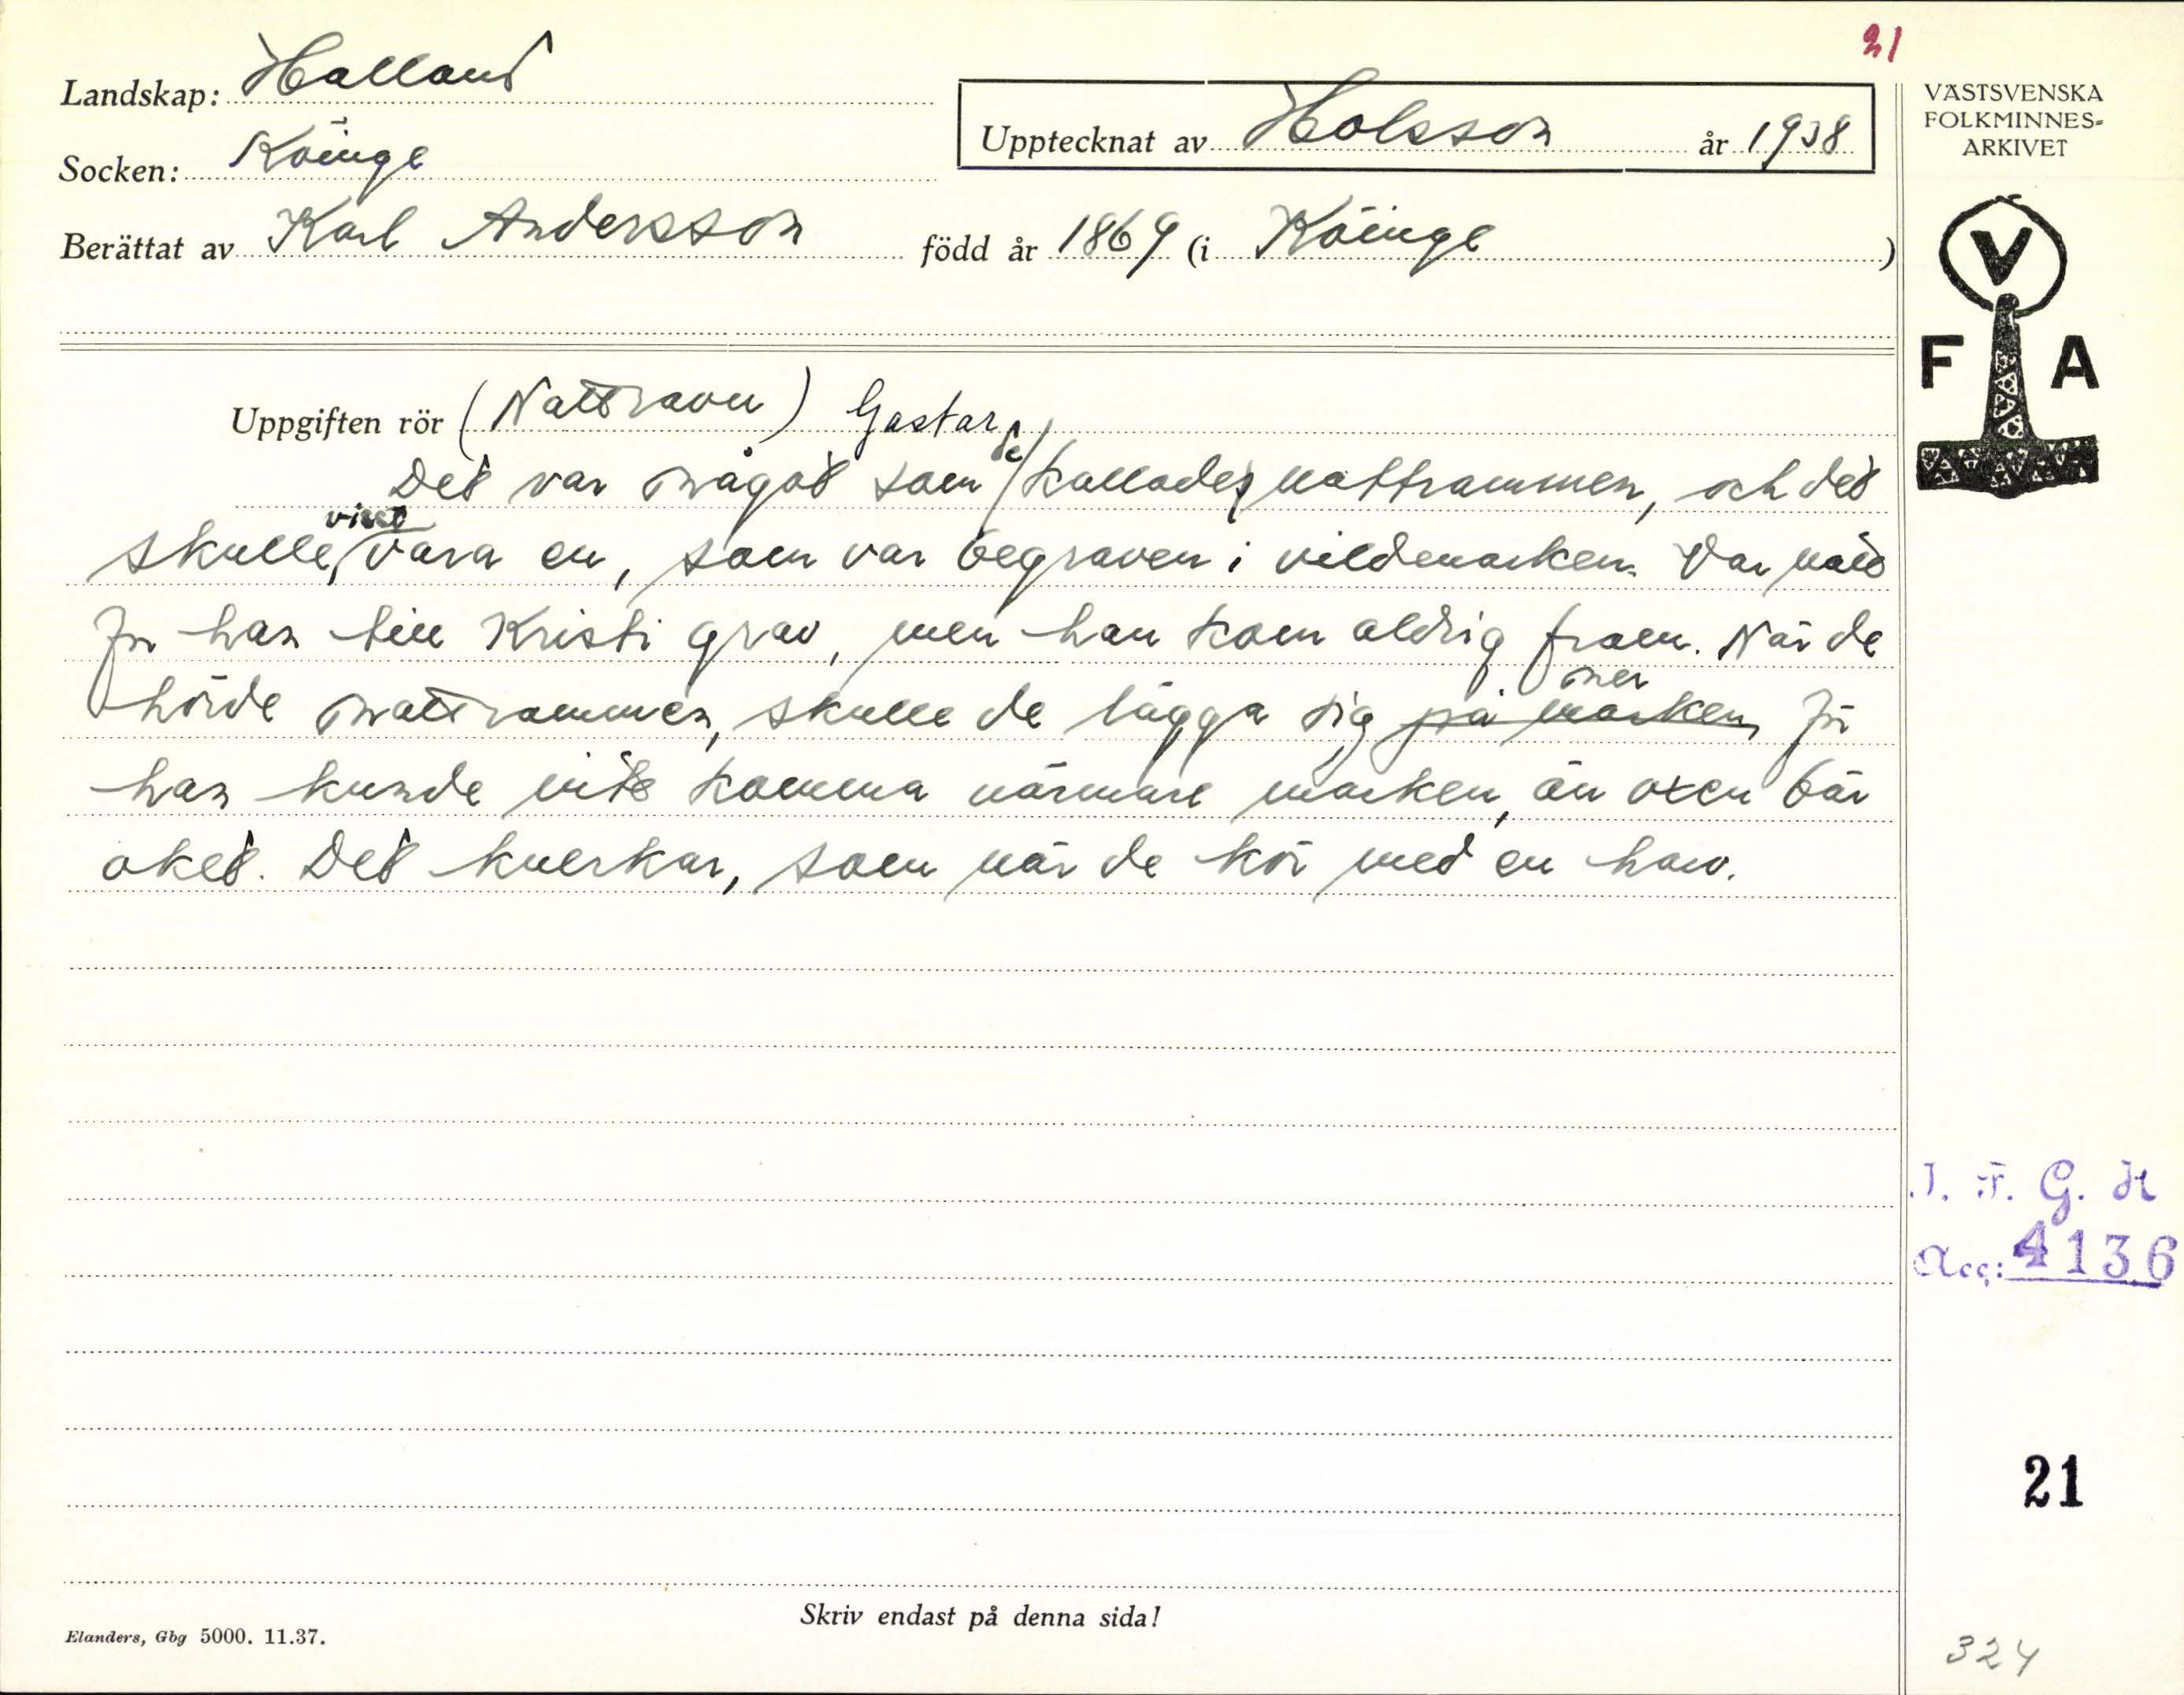 21
Landskap: Halland
Upptecknat av Holsson år 1938
VÄSTSVENSKA
FOLKMINNES-
ARKIVET
Socken: Köinge
Berättat av Karl Andersson född år 1869 (i Köinge )
V
F A
Uppgiften rör (Nattravn) Gastar
Det var något som de kallades nattrammen, och det
skulle visst vara en, som var begraven i vildmarken. Var natt
för han till Kristi grav, men han kom aldrig fram. När de
hörde nattrammen, skulle de lägga sig på marken ner för
han kunde inte komma närmare marken, än oxen bär
oket. Det knerkar, som när de kör med en harv.
I. F. G. H
Acc: 4136
21
Skriv endast på denna sida!
Elanders, Gbg 5000. 11.37.
324